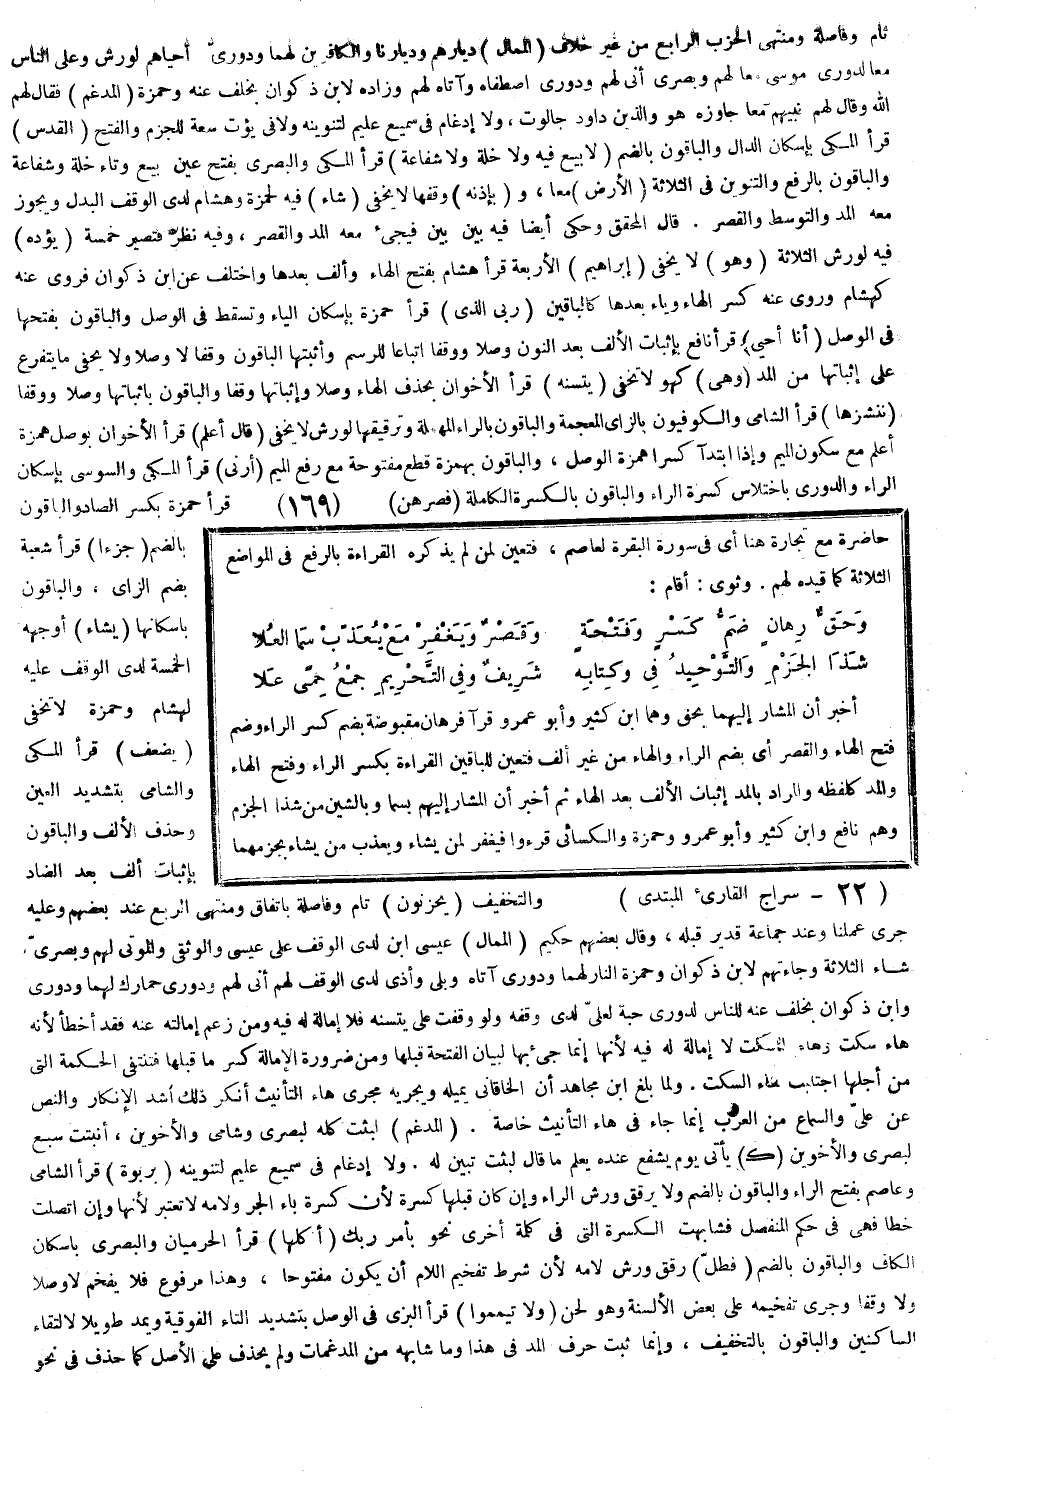 تام وفاصلة ومنتهى الحزب الرابع من غير خلاف ( المال ) ديارهم وديارنا والكافرين لهما ودورىّ أحياهم لورش وعلى الناس
معا لدورى موسى معا لهم وبصرى أنى لهم ودورى اصطفاه وآتاه لهم وزاده لابن ذكوان بخلف عنه وحمزة ( المدغم ) فقال لهم
الله وقال لهم نبيهم معا جاوزه هو والذين داود جالوت ، ولا إدغام فى سميع عليم لتنوينه ولا فى يؤت سعة للجزم والفتح ( القدس )
قرأ المكى بإسكان الدال والباقون بالضم ( لا بيع فيه ولا خلة ولا شفاعة ) قرأ المكى والبصرى بفتح عين بيع وتاء خلة وشفاعة
والباقون بالرفع والتنوين فى الثلاثة ( الأرض ) معا ، و ( بإذنه ) وقفها لا يخفى ( شاء ) فيه لحمزة وهشام لدى الوقف البدل ويجوز
معه المد والتوسط والقصر . قال المحقق وحكى أيضا فيه بين بين فيجىء معه المد والقصر ، وفيه نظر فتصير خمسة ( يؤده )
فيه لورش الثلاثة ( وهو ) لا يخفى ( إبراهيم ) الأربعة قرأ هشام بفتح الهاء وألف بعدها واختلف عن ابن ذكوان فروى عنه
كهشام وروى عنه كسر الهاء وياء بعدها كالباقين ( ربى الذى ) قرأ حمزة بإسكان الياء وتسقط فى الوصل والباقون بفتحها
فى الوصل ( أنا أحيى ) قرأ نافع بإثبات الألف بعد النون وصلا ووقفا اتباعا للرسم وأثبتها الباقون وقفا لا وصلا ولا يخفى ما يتفرع
على إثباتها من المد ( وهى ) كهو لا تخفى ( يتسنه ) قرأ الأخوان بحذف الهاء وصلا وإثباتها وقفا والباقون باثباتها وصلا ووقفا
( ننشزها ) قرأ الشامى والكوفيون بالزاى المعجمة والباقون بالراء المهملة وترقيقها لورش لا يخفى ( قال أعلم ) قرأ الأخوان بوصل همزة
أعلم مع سكون الميم وإذا ابتدآ كسرا همزة الوصل ، والباقون بهمزة قطع مفتوحة مع رفع الميم ( أرنى ) قرأ المكى والسوسى بإسكان
الراء والدورى باختلاس كسرة الراء والباقون بالكسرة الكاملة ( فصرهن ) (١٦٩) قرأ حمزة بكسر الصاد والباقون
بالضم ( جزءا ) قرأ شعبة
بضم الزاى ، والباقون
باسكانها ( يشاء ) أوجهه
الخمسة لدى الوقف عليه
لهشام وحمزة لا تخفى
( يضعف ) قرأ المكى
والشامى بتشديد العين
وحذف الألف والباقون
بإثبات ألف بعد الضاد
حاضرة مع تجارة هنا أى فى سورة البقرة لعاصم ، فتعين لمن لم يذكره القراءة بالرفع فى المواضع
الثلاثة كما قيده لهم . وثوى : أقام :
وَحَقٌّ رِهانٍ ضَمُّ كَسْرٍ وَفَتْحَةٍ وَقَصْرٌ وَيَغْفِرْ مَعْ يُعَذِّبْ سَمَا العُلا
شَذَا الجَزْمِ وَالتَّوْحِيدُ فِى وَكِتابِهِ شَرِيفٌ وفِى التَّحْرِيمِ جَمْعُ حِمًى عَلا
أخبر أن المشار إليهما بحق وهما ابن كثير وأبو عمرو قرآ فرهان مقبوضة بضم كسر الراء وضم
فتح الهاء والقصر أى بضم الراء والهاء من غير ألف فتعين للباقين القراءة بكسر الراء وفتح الهاء
والمد كلفظه والمراد بالمد إثبات الألف بعد الهاء ثم أخبر أن المشار إليهم بسما وبالشين من شذا الجزم
وهم نافع وابن كثير وأبو عمرو وحمزة والكسائى قرءوا فيغفر لمن يشاء ويعذب من يشاء بجزمهما
( ٢٢ – سراج القارىء المبتدى )
والتخفيف ( يحزنون ) تام وفاصلة باتفاق ومنتهى الربع عند بعضهم وعليه
جرى عملنا وعند جماعة قدير قبله ، وقال بعضهم حكيم ( الممال ) عيسى ابن لدى الوقف على عيسى والوثقى والموتى لهم وبصرىّ ،
شاء الثلاثة وجاءتهم لابن ذكوان وحمزة النار لهما ودورى آتاه وبلى وأذى لدى الوقف لهم أنى لهم ودورى حمارك لهما ودورى
وابن ذكوان بخلف عنه للناس لدورى حبة لعلىّ لدى وقفه ولو وقفت على يتسنه فلا إمالة له فيه ومن زعم إمالته عنه فقد أخطأ لأنه
هاء سكت وهاء السكت لا إمالة له فيه لأنها إنما جىء بها لبيان الفتحة قبلها ومن ضرورة الإمالة كسر ما قبلها فتنتفى الحكمة التى
من أجلها اجتلبت هاء السكت . ولما بلغ ابن مجاهد أن الخاقانى يميله ويجريه مجرى هاء التأنيث أنكر ذلك أشد الإنكار والنص
عن علىّ والسماع من العرب إنما جاء فى هاء التأنيث خاصة . ( المدغم ) لبثت كله لبصرى وشامى والأخوين ، أنبتت سبع
لبصرى والأخوين (ك) يأتى يوم يشفع عنده يعلم ما قال لبثت تبين له . ولا إدغام فى سميع عليم لتنوينه ( بربوة ) قرأ الشامى
وعاصم بفتح الراء والباقون بالضم ولا يرقق ورش الراء وإن كان قبلها كسرة لأن كسرة باء الجر ولامه لا تعتبر لأنها وإن اتصلت
خطا فهى فى حكم المنفصل فشابهت الكسرة التى فى كلمة أخرى نحو بأمر ربك ( أكلها ) قرأ الحرميان والبصرى باسكان
الكاف والباقون بالضم ( فطلّ ) رقق ورش لامه لأن شرط تفخيم اللام أن يكون مفتوحا ، وهذا مرفوع فلا يفخم لا وصلا
ولا وقفا وجرى تفخيمه على بعض الألسنة وهو لحن ( ولا تيمموا ) قرأ البزى فى الوصل بتشديد التاء الفوقية ويمد طويلا لالتقاء
الساكنين والباقون بالتخفيف ، وإنما ثبت حرف المد فى هذا وما شابهه من المدغمات ولم يحذف على الأصل كما حذف فى نحو